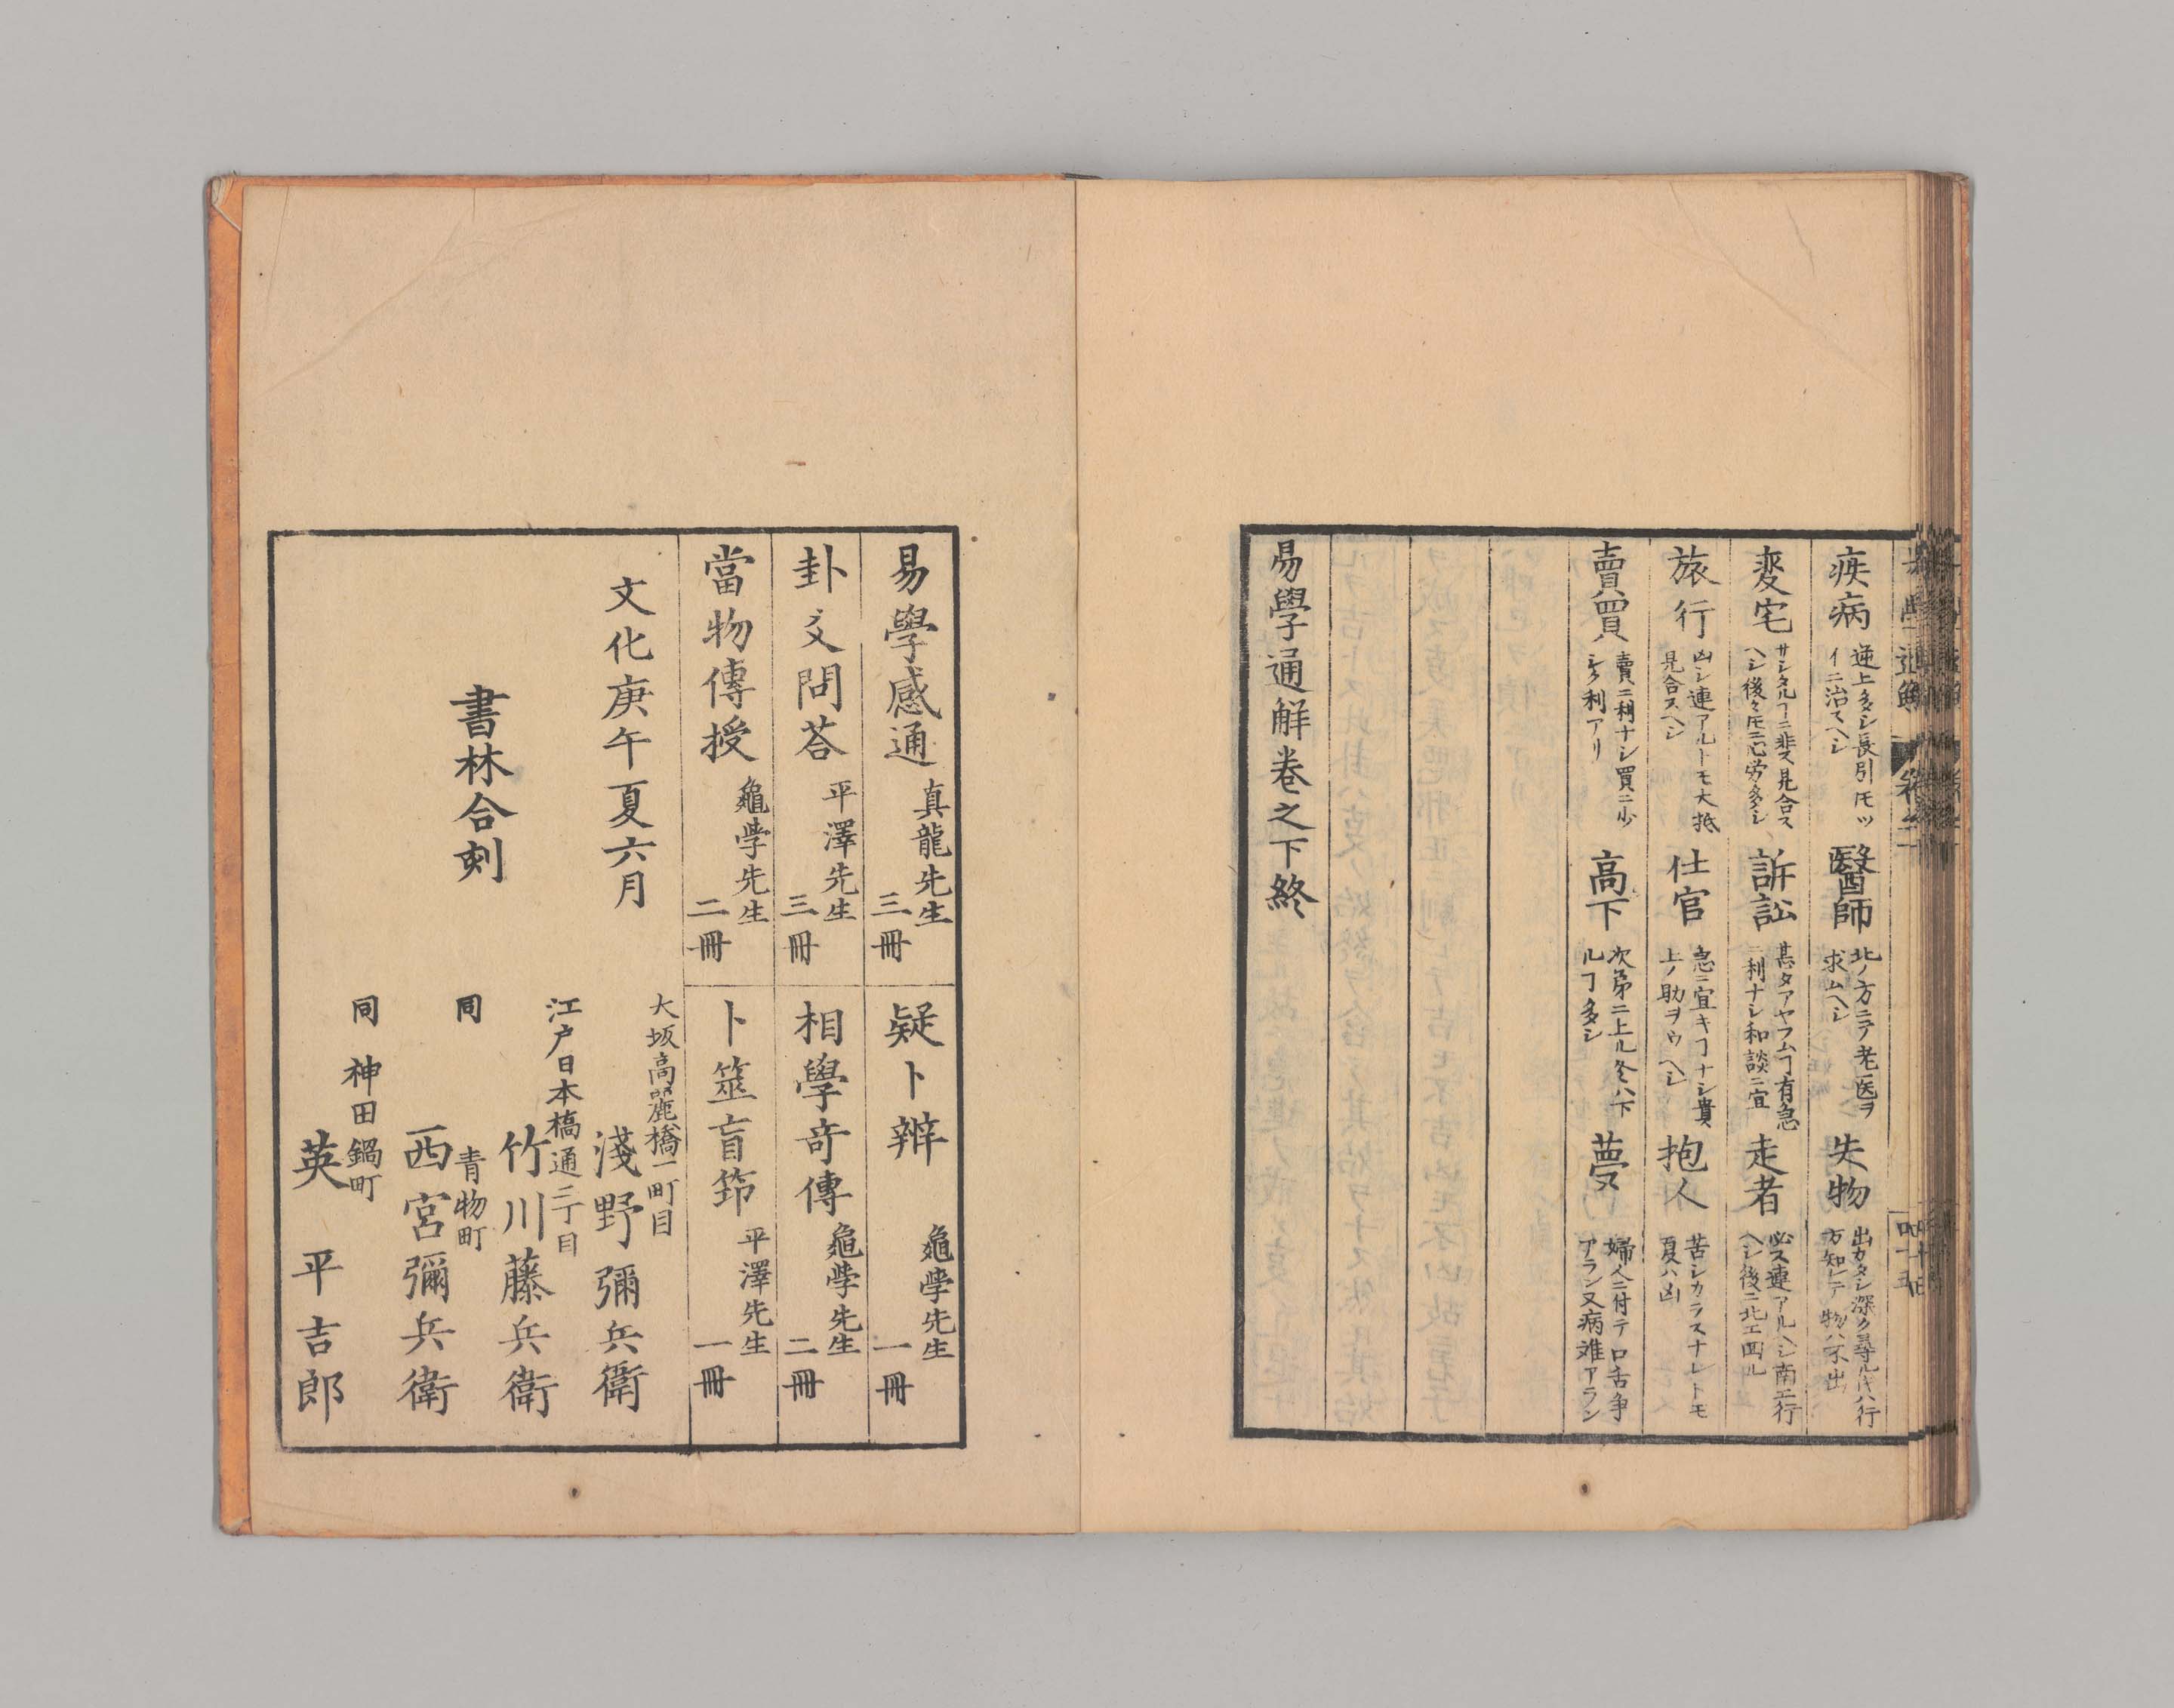 疾病
逆上多シ長引モツ
イニ治スヘシ
醫師
北ノ方ニテ老医ヲ
求ムヘシ
失物
出カタシ深ク尋ルトキハ行
方知レテ物ハ不出
変宅
サシタルヿニ非ス見合ス
ヘシ後々モ心労多シ
訴訟
甚タアヤフムヿ有急
ニ利ナシ和談ニ宜
走者
必ス連アルヘシ南エ行
ヘシ後ニ北エ回ル
旅行
凶シ連アルトモ大抵
見合スヘシ
仕官
急ニ宜キヿナシ貴
上ノ助ヲウヘシ
抱人
苦シカラスナレトモ
夏ハ凶
賣買
賣ニ利ナシ買ニ少
シク利アリ
高下
次第ニ上ル冬ハ下
ルヿ多シ
夢
婦人ニ付テ口舌争
アラン又病难アラン
易學通解巻之下終
易學感通 真龍先生 三冊
疑卜辨 龜學先生 一冊
卦爻問荅 平澤先生 三冊
相學奇傳 龜學先生 二冊
當物傳授 龜學先生 二冊
卜筮盲筇 平澤先生 一冊
文化庚午夏六月
書林合刻
大坂高麗橋一町目
淺野彌兵衛
江戸日本橋通二丁目
竹川藤兵衛
同 青物町
西宮彌兵衛
同 神田鍋町
英平吉郎